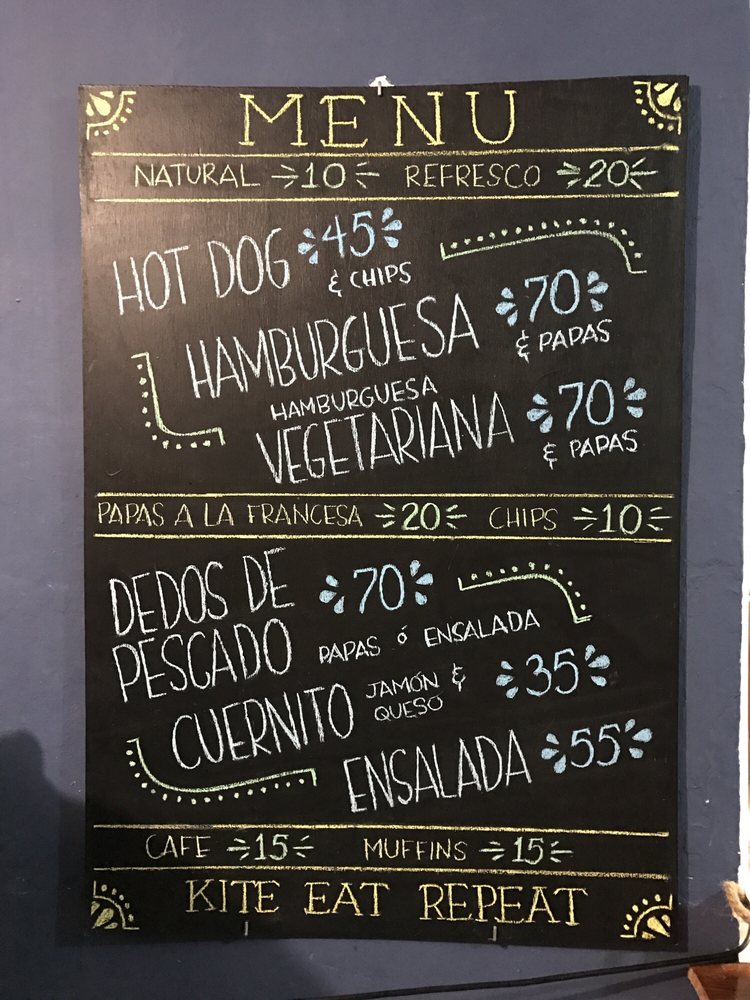 MENU
NATURAL 10 REFRESCO 20
HOT DOG 45
& CHIPS
HAMBURGUESA 70
& PAPAS
HAMBURGUESA
VEGETARIANA 70
& PAPAS
PAPAS A LA FRANCESA 20 CHIPS 10
DEDOS DE
PESCADO 70
PAPAS ó ENSALADA
CUERNITO JAMÓN &
QUESO 35
ENSALADA 55
CAFE 15 MUFFINS 15
KITE EAT REPEAT